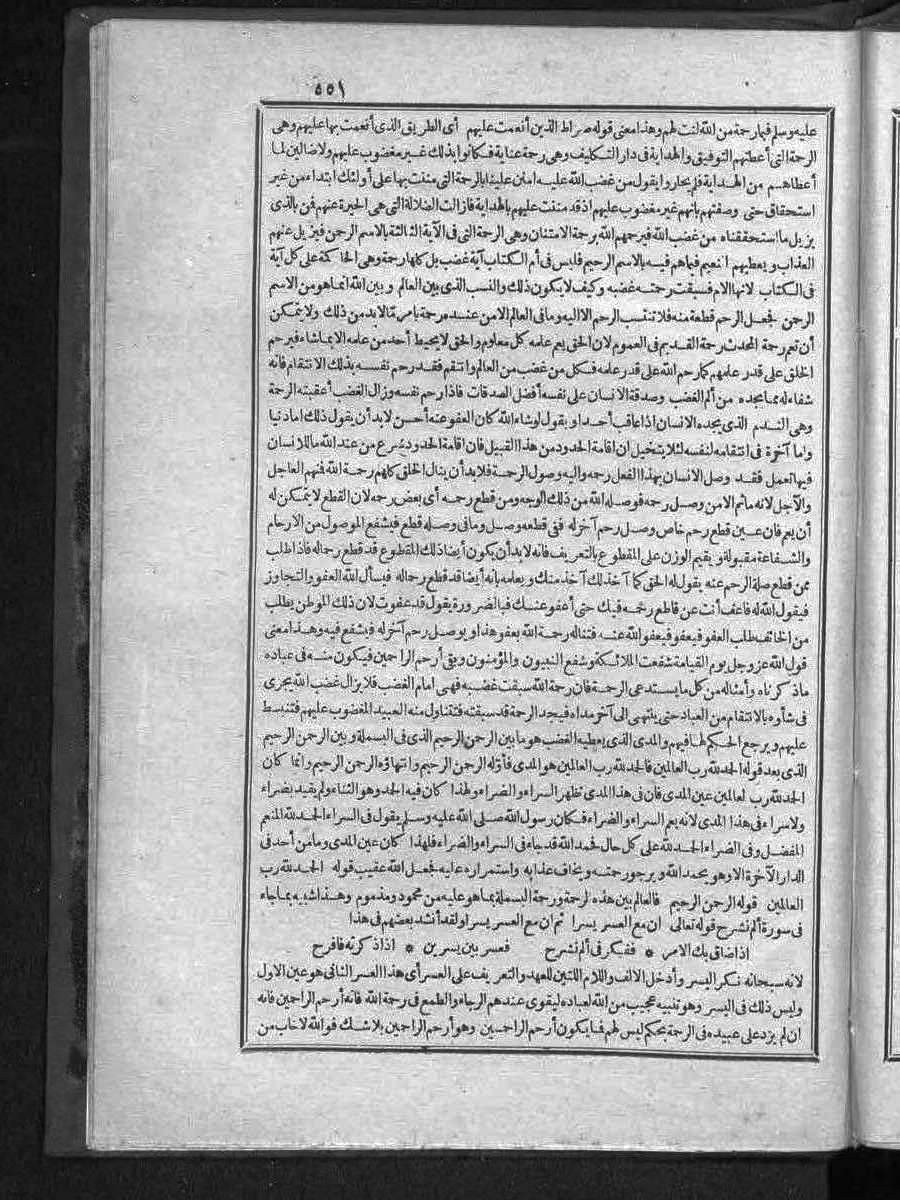 ٥٥١
عليه وسلم فبما رحمة من الله لنت لهم وهذا معنى قوله صراط الذين أنعمت عليهم أى الطريق الذى أنعمت بها عليهم وهى
الرحمة التى أعطتهم التوفيق والهداية فى دار التكليف وهى رحمة عناية فكانوا بذلك غير مغضوب عليهم ولا ضالين لما
أعطاهم من الهداية فلم يحاروا يقول من غضب الله عليه امنن علينا بالرحمة التى مننت بها على أولئك ابتداء من غير
استحقاق حتى وصفتهم بأنهم غير مغضوب عليهم اذ قد مننت عليهم بالهداية فازالت الضلالة التى هى الحيرة عنهم فمن بالذى
يزيل ما استحققناه من غضب الله فيرحمهم الله برحمة الامتنان وهى الرحمة التى فى الآية الثالثة بالاسم الرحمن فيزيل عنهم
العذاب ويعطيهم النعيم فيما هم فيه بالاسم الرحيم فليس فى أم الكتاب آية غضب بل كلها رحمة وهى الحاكمة على كل آية
فى الكتاب لانها الام فسبقت رحمته غضبه وكيف لا يكون ذلك والنسب الذى بين العالم وبين الله انما هو من الاسم
الرحمن فجعل الرحم قطعة منه فلا تنتسب الرحم الا اليه وما فى العالم الا من عنده رحمة بامر ما لا بد من ذلك ولا يتمكن
أن تعم رحمة المحدث رحمة القديم فى العموم لان الحق يعم علمه كل معلوم والحق لا يحيط أحد من علمه الا بما شاء فيرحم
الخلق على قدر علمهم كما رحم الله على قدر علمه فكل من غضب من العالم وانتقم فقد رحم نفسه بذلك الانتقام فانه
شفاء له مما يجده من ألم الغضب وصدقة الانسان على نفسه أفضل الصدقات فاذا رحم نفسه وزال الغضب أعقبته الرحمة
وهى الندم الذى يجده الانسان اذا عاقب أحدا ويقول لو شاء الله كان العفو عنه أحسن لا بد أن يقول ذلك اما دنيا
واما آخرة فى انتقامه لنفسه لئلا يتخيل ان اقامة الحدود من هذا القبيل فان اقامة الحدود شرع من عند الله ما للانسان
فيها تعمل فقد وصل الانسان بهذا الفعل رحمه واليه وصول الرحمة فلا بد أن ينال الخلق كلهم رحمة الله فمنهم العاجل
والآجل لانه ما ثم الا من وصل رحمه فوصله الله من ذلك الوجه ومن قطع رحمه أى بعض رحمه لان القطع لا يتمكن له
أن يعم فان عين قطع رحم خاص وصل رحم آخر له ففى قطعه وصل وما فى وصله قطع فيشفع الموصول من الارحام
والشفاعة مقبولة ويقيم الوزن على المقطوع بالتعريف فانه لا بد أن يكون أيضا ذلك المقطوع قد قطع رحما له فاذا طلب
ممن قطع صلة الرحم عنه يقول له الحق كما آخذ لك آخذ منك ويعلمه بانه أيضا قد قطع رحما له فيسأل الله العفو والتجاوز
فيقول الله له فاعف أنت عن قاطع رحمه فيك حتى أعفو عنك فبالضرورة يقول قد عفوت لان ذلك الموطن يطلب
من الخائف طلب العفو فيعفو فيعفو الله عنه فتناله رحمة الله بعفو هذا ويوصل رحم آخر له فيشفع فيه وهذا معنى
قول الله عز وجل يوم القيامة شفعت الملائكة وشفع النبيون والمؤمنون وبقى أرحم الراحمين فيكون منه فى عباده
ما ذكرناه وأمثاله من كل ما يستدعى الرحمة فان رحمة الله سبقت غضبه فهى امام الغضب فلا يزال غضب الله يجرى
فى شأوه بالانتقام من العباد حتى ينتهى الى آخر مداه فيجد الرحمة قد سبقته فتتناول منه العبيد المغضوب عليهم فتنبسط
عليهم ويرجع الحكم لها فيهم والمدى الذى يعطيه الغضب هو ما بين الرحمن الرحيم الذى فى البسملة وبين الرحمن الرحيم
الذى بعد قوله الحمد لله رب العالمين فالحمد لله رب العالمين هو المدى فأوله الرحمن الرحيم وانتهاؤه الرحمن الرحيم وانما كان
الحمد لله رب لعالمين عين المدى فان فى هذا المدى تظهر السراء والضراء ولهذا كان فيه الحمد وهو الثناء ولم يقيد بضراء
ولا سراء فى هذا المدى لانه يعم السراء والضراء فكان رسول الله صلى الله عليه وسلم يقول فى السراء الحمد لله المنعم
المفضل وفى الضراء الحمد لله على كل حال فحمد الله قد جاء فى السراء والضراء فلهذا كان عين المدى وما من أحد فى
الدار الآخرة الا وهو يحمد الله ويرجو رحمته ويخاف عذابه واستمراره عليه فجعل الله عقيب قوله الحمد لله رب
العالمين قوله الرحمن الرحيم فالعالم بين هذه لرحمة ورحمة البسملة بما هو عليه من محمود ومذموم وهذا شبيه بما جاء
فى سورة ألم نشرح قوله تعالى ان مع العسر يسرا ثم ان مع العسر يسرا ولقد أنشد بعضهم فى هذا
اذا ضاق بك الامر * ففكر فى ألم نشرح فعسر بين يسرين * اذا ذكرته فافرح
لانه سبحانه نكر اليسر وأدخل الالف واللام اللتين للعهد والتعريف على العسر أى هذا العسر الثانى هو عين الاول
وليس ذلك فى اليسر وهو تنبيه عجيب من الله لعباده ليقوى عندهم الرجاء والطمع فى رحمة الله فانه أرحم الراحمين فانه
ان لم يزد على عبيده فى الرحمة بحكم ليس لهم فما يكون أرحم الراحمين وهو أرحم الراحمين بلا شك فوالله لا خاب من